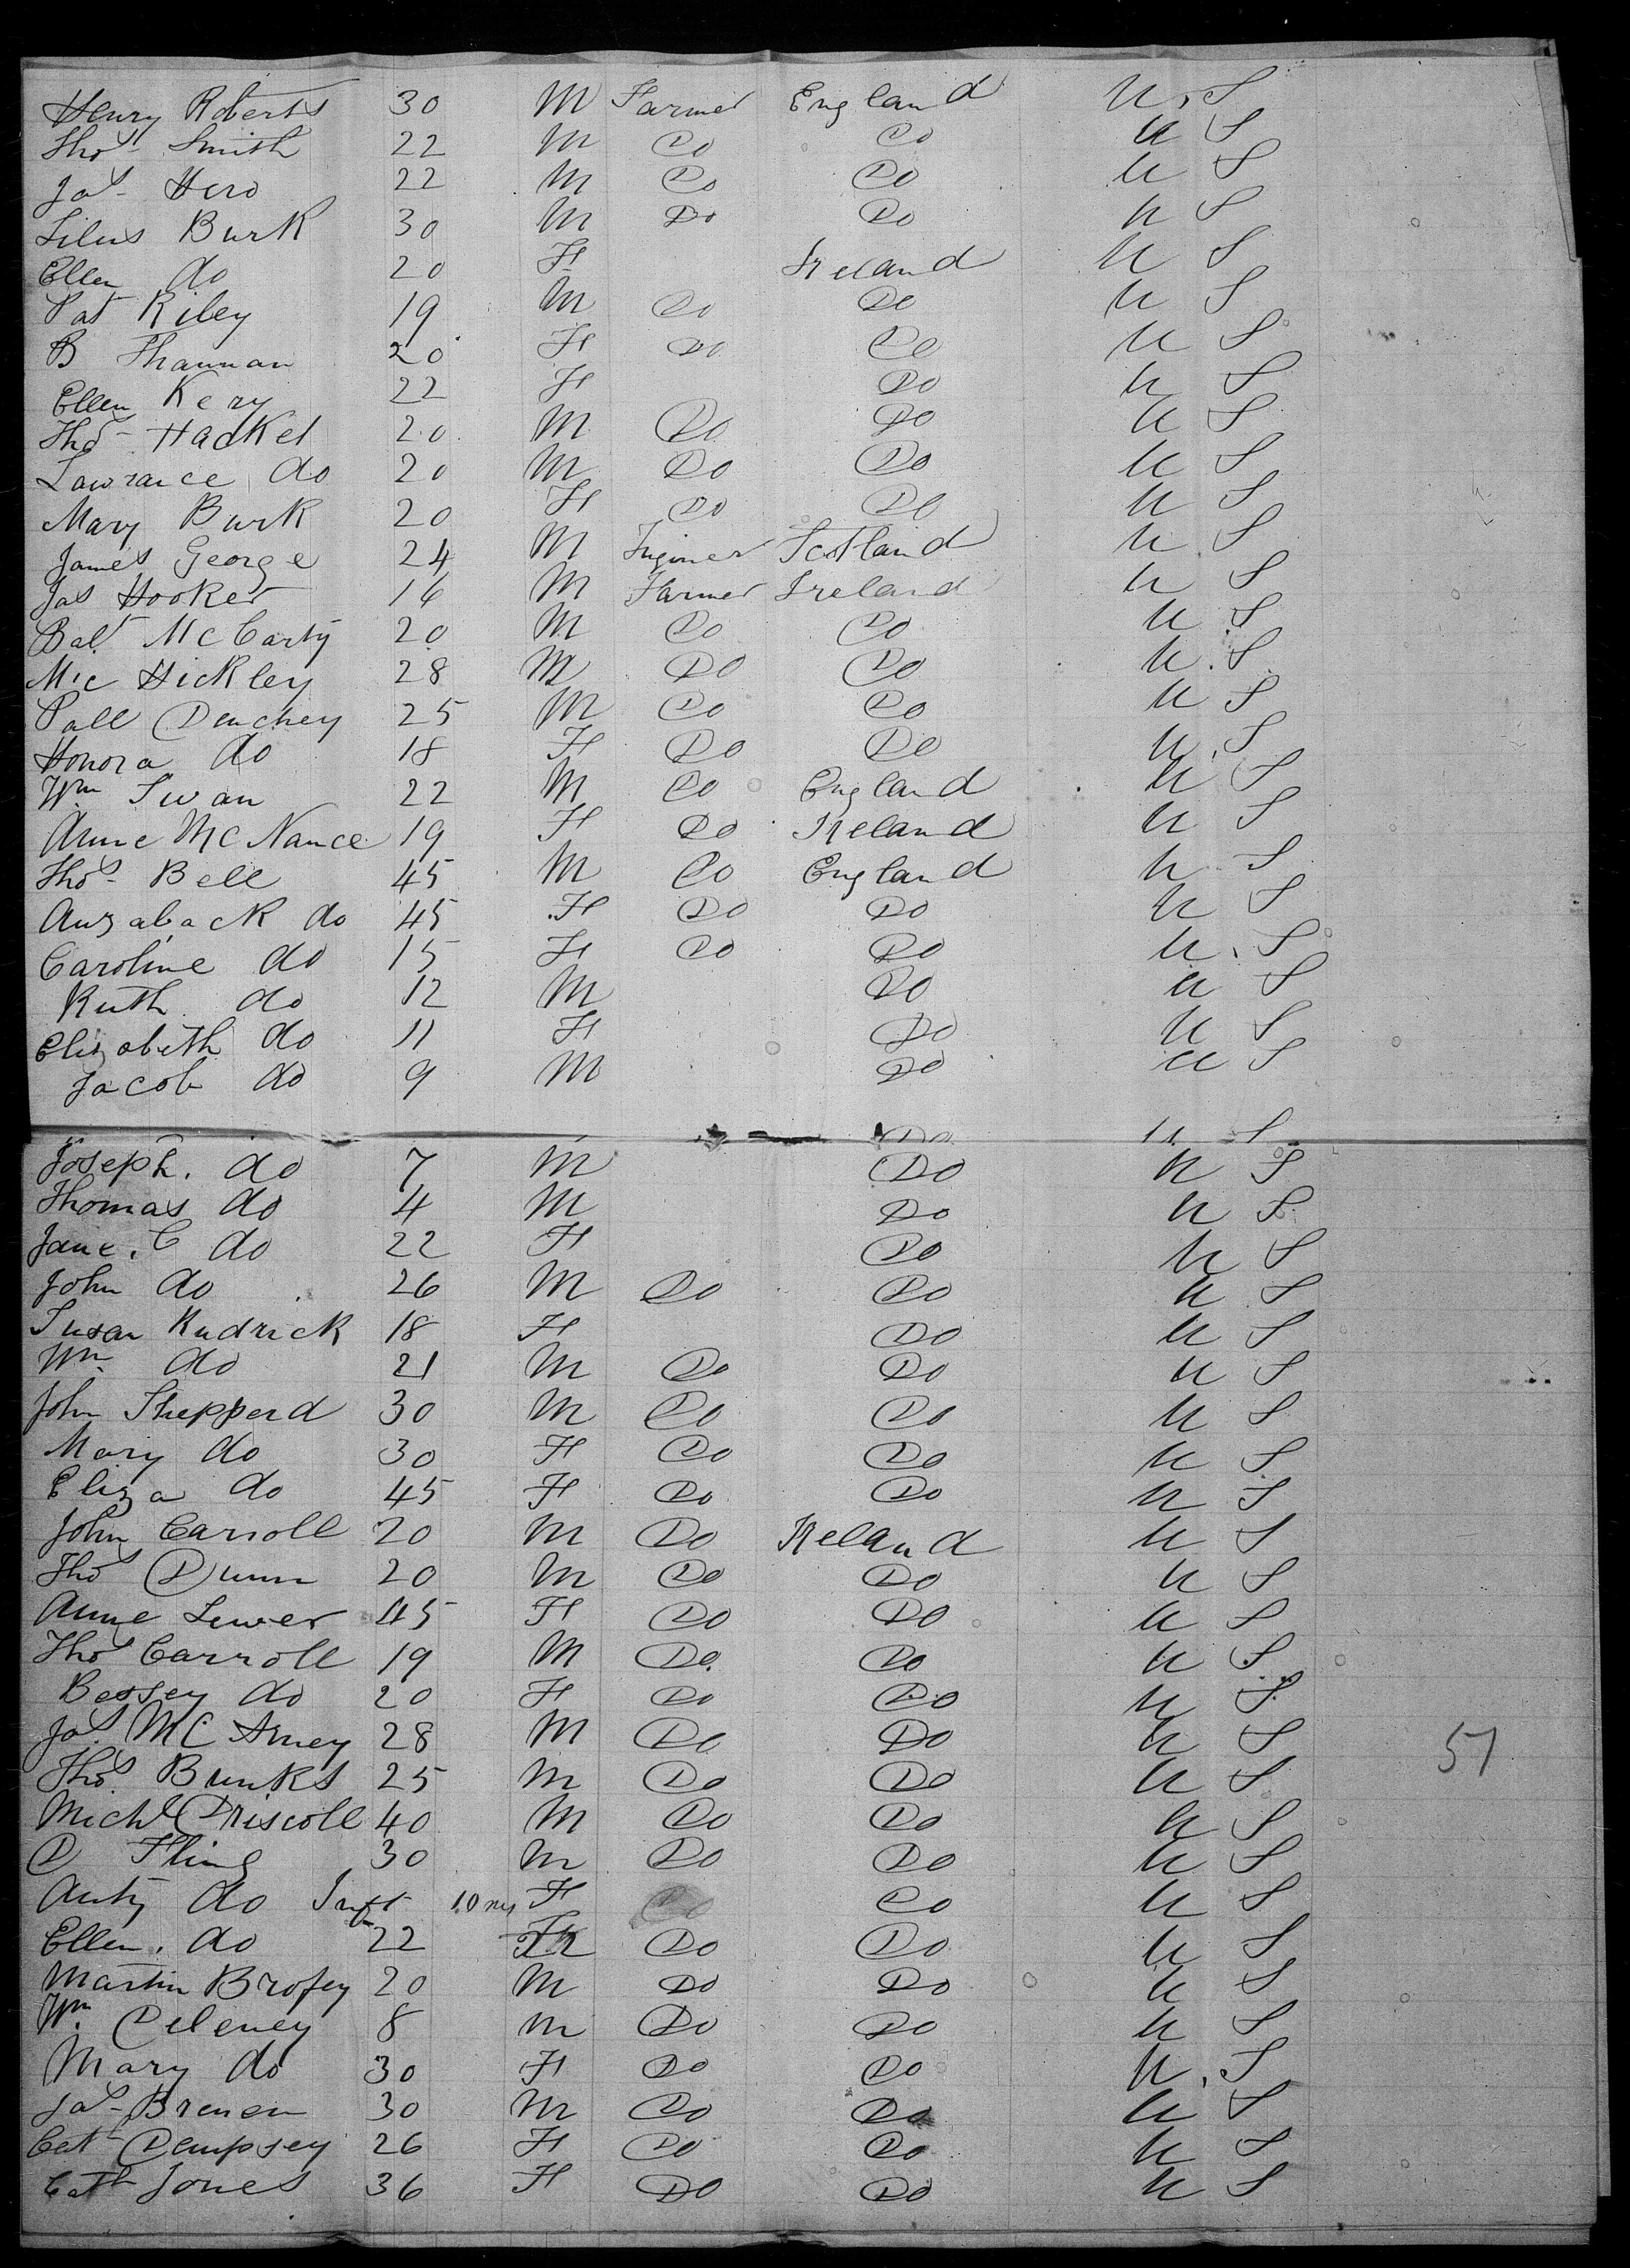 Henry Roberts 30 M Farmer England U. S
Thos Smith 22 M Do Do U S
Jas Hero 22 M Do Do U S
Silus Burk 30 M Do Do U S
Ellen do 20 F Ireland U S
Pat Riley 19 M Do Do U S
B Thannan 20 F Do Do U S
Ellen Kery 22 F Do U S
Thos Hacket 20 M Do Do U S
Lawrance do 20 M Do Do U S
Mary Burk 20 F Do Do U S
James George 24 M Scotland U S
Jas Hooker 16 M Farmer Ireland U S
Bat. McCarty 20 M Do Do U S
Mic Hickley 28 M Do Do U. S
Pall Denchey 25 M Do Do U S
Honora do 18 F Do Do U. S
Wm Swan 22 M Do England U S
Anne McNance 19 F Do Ireland U S
Thos Bell 45 M Do England U S
do 45 F Do Do U S
Caroline do 15 F Do Do U. S
Ruth do 12 M Do U S
Elizabeth do 11 F Do U S
Jacob do 9 M Do U S
Do U S
Joseph. do 7 M Do U S
Thomas do 4 M Do U S
Jane. C do 22 F Do U S
John do 26 M Do Do U S
Susan Kudrick 18 F Do U S
Wm. do 21 M Do Do U S
John Shepperd 30 M Do Do U S
Mary do 30 F Do Do U S
Eliza do 45 F Do Do U S
John Carroll 20 M Do Ireland U S
Thos Dunn 20 M Do Do U S
Anne Lewer 45 F Do Do U S
Thos Carroll 19 M Do. Do U S
Bessey do 20 F Do Do U S
Jas. McAmey 28 M Do Do U S
Thos. Bunks 25 M Do Do U S 51
Michl Driscoll 40 M Do Do U S
D Fling 30 M Do Do U S
Anty do Inft 10 ms F Do U S
Ellen. do 22 F Do Do U S
Martin Brofey 20 M Do Do U S
Wm. Deleney 8 M Do Do U S
Mary do 30 F Do Do U. S
Jas Brenen 30 M Do Do U S
Cat Dempsey 26 F Do Do U S
Cath Jones 36 F Do Do U S